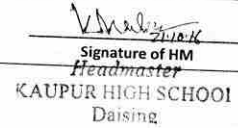 21-10-16
Signature of HM
Headmaster
KAUPUR HIGH SCHOOl
Daising